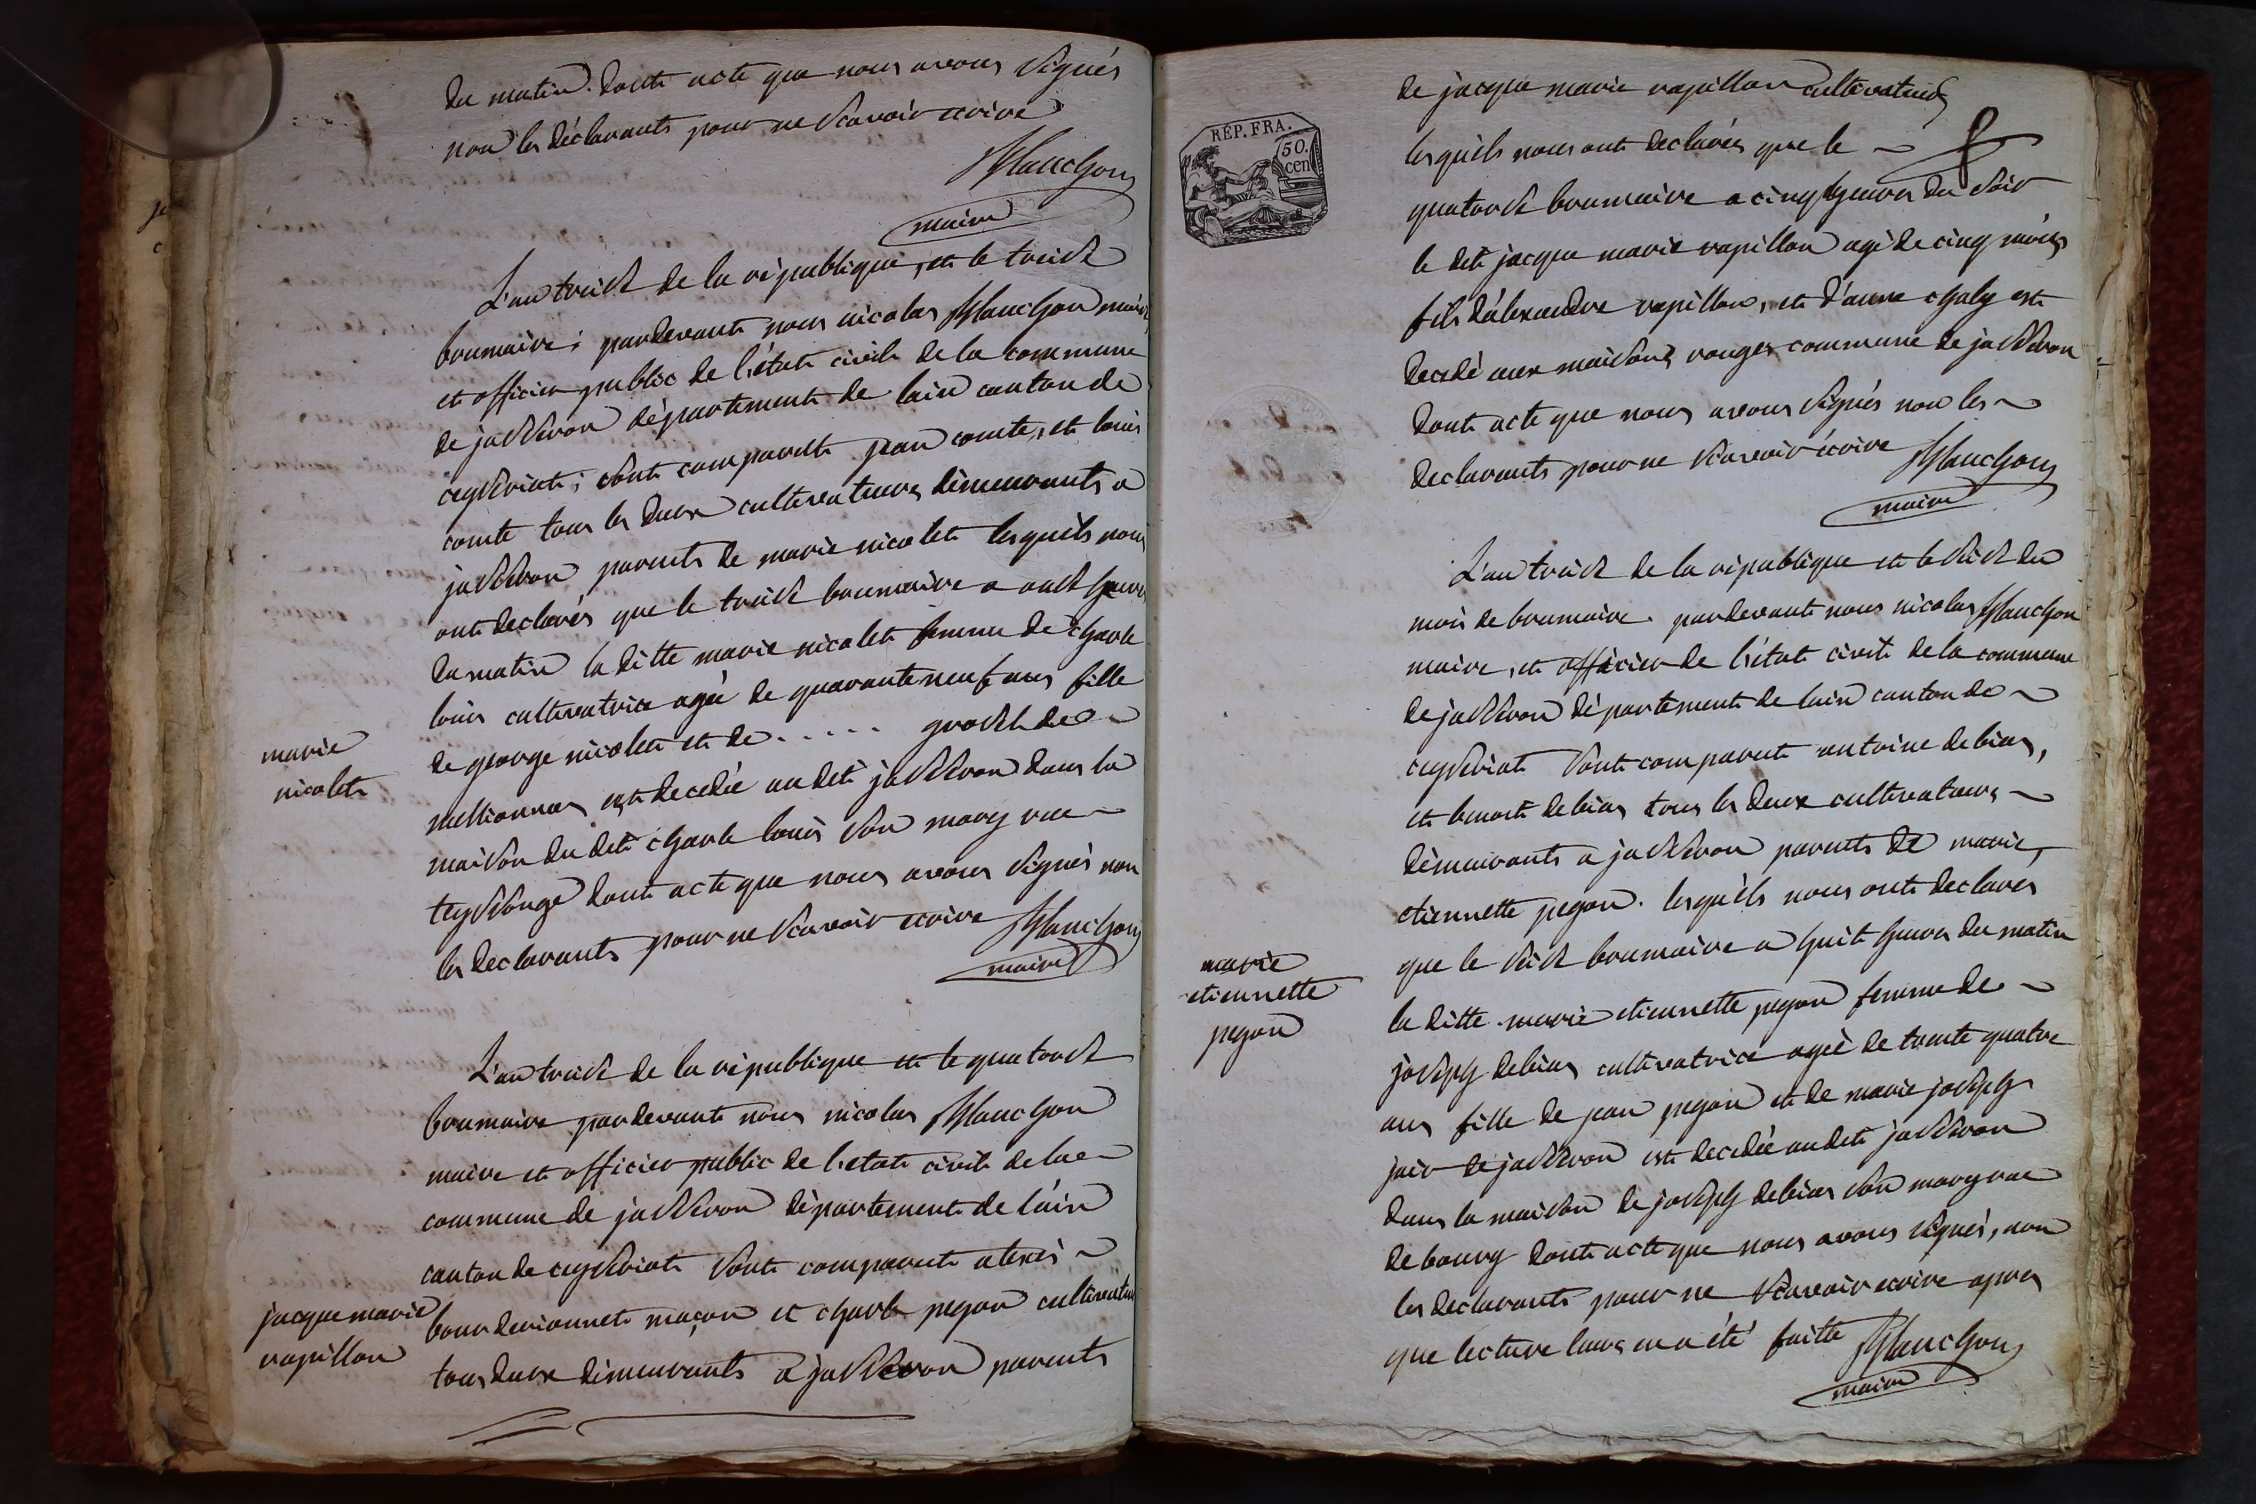 du matin. dont acte que nous avons signés
non les déclarants pour ne scavoir ecrire
Planchon
maire
L'an treize de la république, et le treize
brumaire; pardevant nous nicolas Planchon maire
et officier public de l'état civile de la commune
de jasseron département de lain canton de
ceyseriat; sont comparut jean comte, et louis
comte tous les deux cultivateurs démeurants a
jasseron parents de marie nicolet lesquels nous
ont declarés que le treize brumaire a onze heures
du matin la ditte marie nicolet femme de charle
louis cultivatrice agée de quarante neuf ans fille
marie
nicolet
de george nicolet et de . . . . . grosel de
millionnas est decedée au det jasseron dans la
maison du det charle louis son mary rue
teyssonge dont acte que nous avons signés non
les declarants pour ne scavoir ecrire Planchon
maire
L'an treize de la république et le quatorze
brumaire pardevant nous nicolas Planchon
maire et officier public de l'etat civile de la
commune de jasseron département de l'ain
canton de ceyseriat sont comparut alexis
jacque marie
rapillon
bourdevionnet maçon et charle pegon cultivateur
tous deux démeurants a jasseron parents
RÉP. FRA.
50.
cen
de jacque marie rapillon cultivateurs
lesquels nous ont declarés que le
quatorze brumaire a cinq heures du soir
le det jacque marie rapillon agé de cinq mois
fils d'alexandre rapillon, et d'anne chaly est
decedé aux maisons rouges commune de jasseron
dont acte que nous avons signés non les
declarants pour ne scavoir écrire Planchon
maire
L'an treize de la république et le seize du
mois de brumaire. pardevant nous nicolas Planchon
maire, et officier de l'état civile de la commune
de jasseron département de lain canton de
ceyseriat sont comparut antoine debias,
et benoit debias tous les deux cultivateurs
démeurants a jasseron parents de marie
etiennette pegon. lesquels nous ont declares
que le seize brumaire a huit heures du matin
marie
etiennette
pegon
la ditte marie etiennette pegon femme de
joseph debias cultivatrice agée de trente quatre
ans fille de jean pegon et de marie joseph
de jasseron est decedée au det jasseron
dans la maison de joseph debias son mary rue
de bourg dont acte que nous avons signés, non
les declarants pour ne scavoir ecrire apres
que lecture leurs en a été faitte Planchon
maire